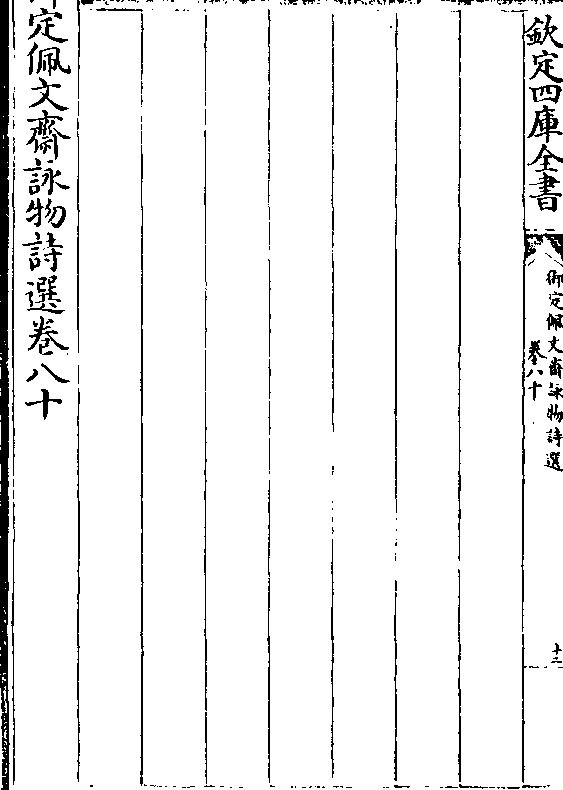 欽定四庫全書
御定佩文齋詠物詩選
卷八十
十二
定佩文齋詠物詩選卷八十